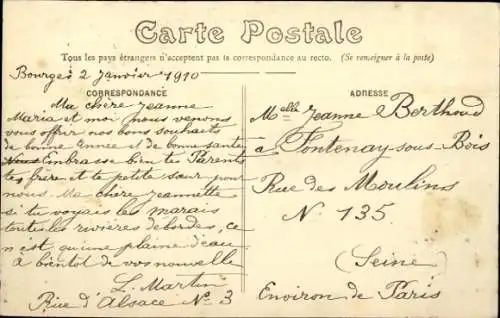 Carte Postale
Tous les pays étrangers n'acceptent pas la correspondance au recto. (Se renseigner à la poste)
Bourges 2 Janvier 1910
CORRESPONDANCE
Ma chère Jeanne
Maria et moi nous venons
vous offrir nos bons souhaits
de bonne Année et de bonne santé
Embrasse bien tes Parents
tes frère et te petite sœur pour
nous. Ma chère Jeannette
si tu voyais les marais
toutes les rivières débordes, ce
n est qu'une plaine d'eau
à bientot de vos nouvelle
L. Martin
Rue d'Alsace No 3
ADRESSE
Melle Jeanne Berthoud
à Fontenay-sous-Bois
Rue des Moulins
N. 135
(Seine)
Environ de Paris